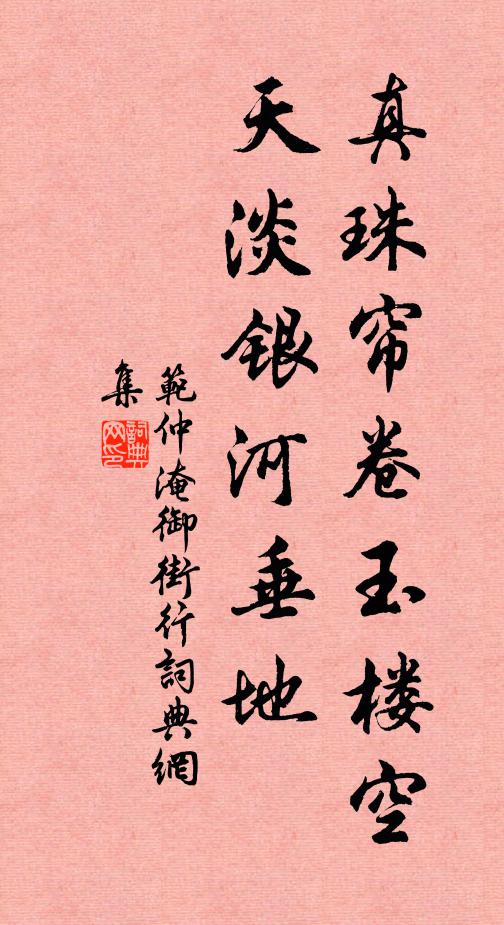 真珠帘卷玉楼空
天淡银河垂地
範仲淹御街行詞典網
集
詞典
网印